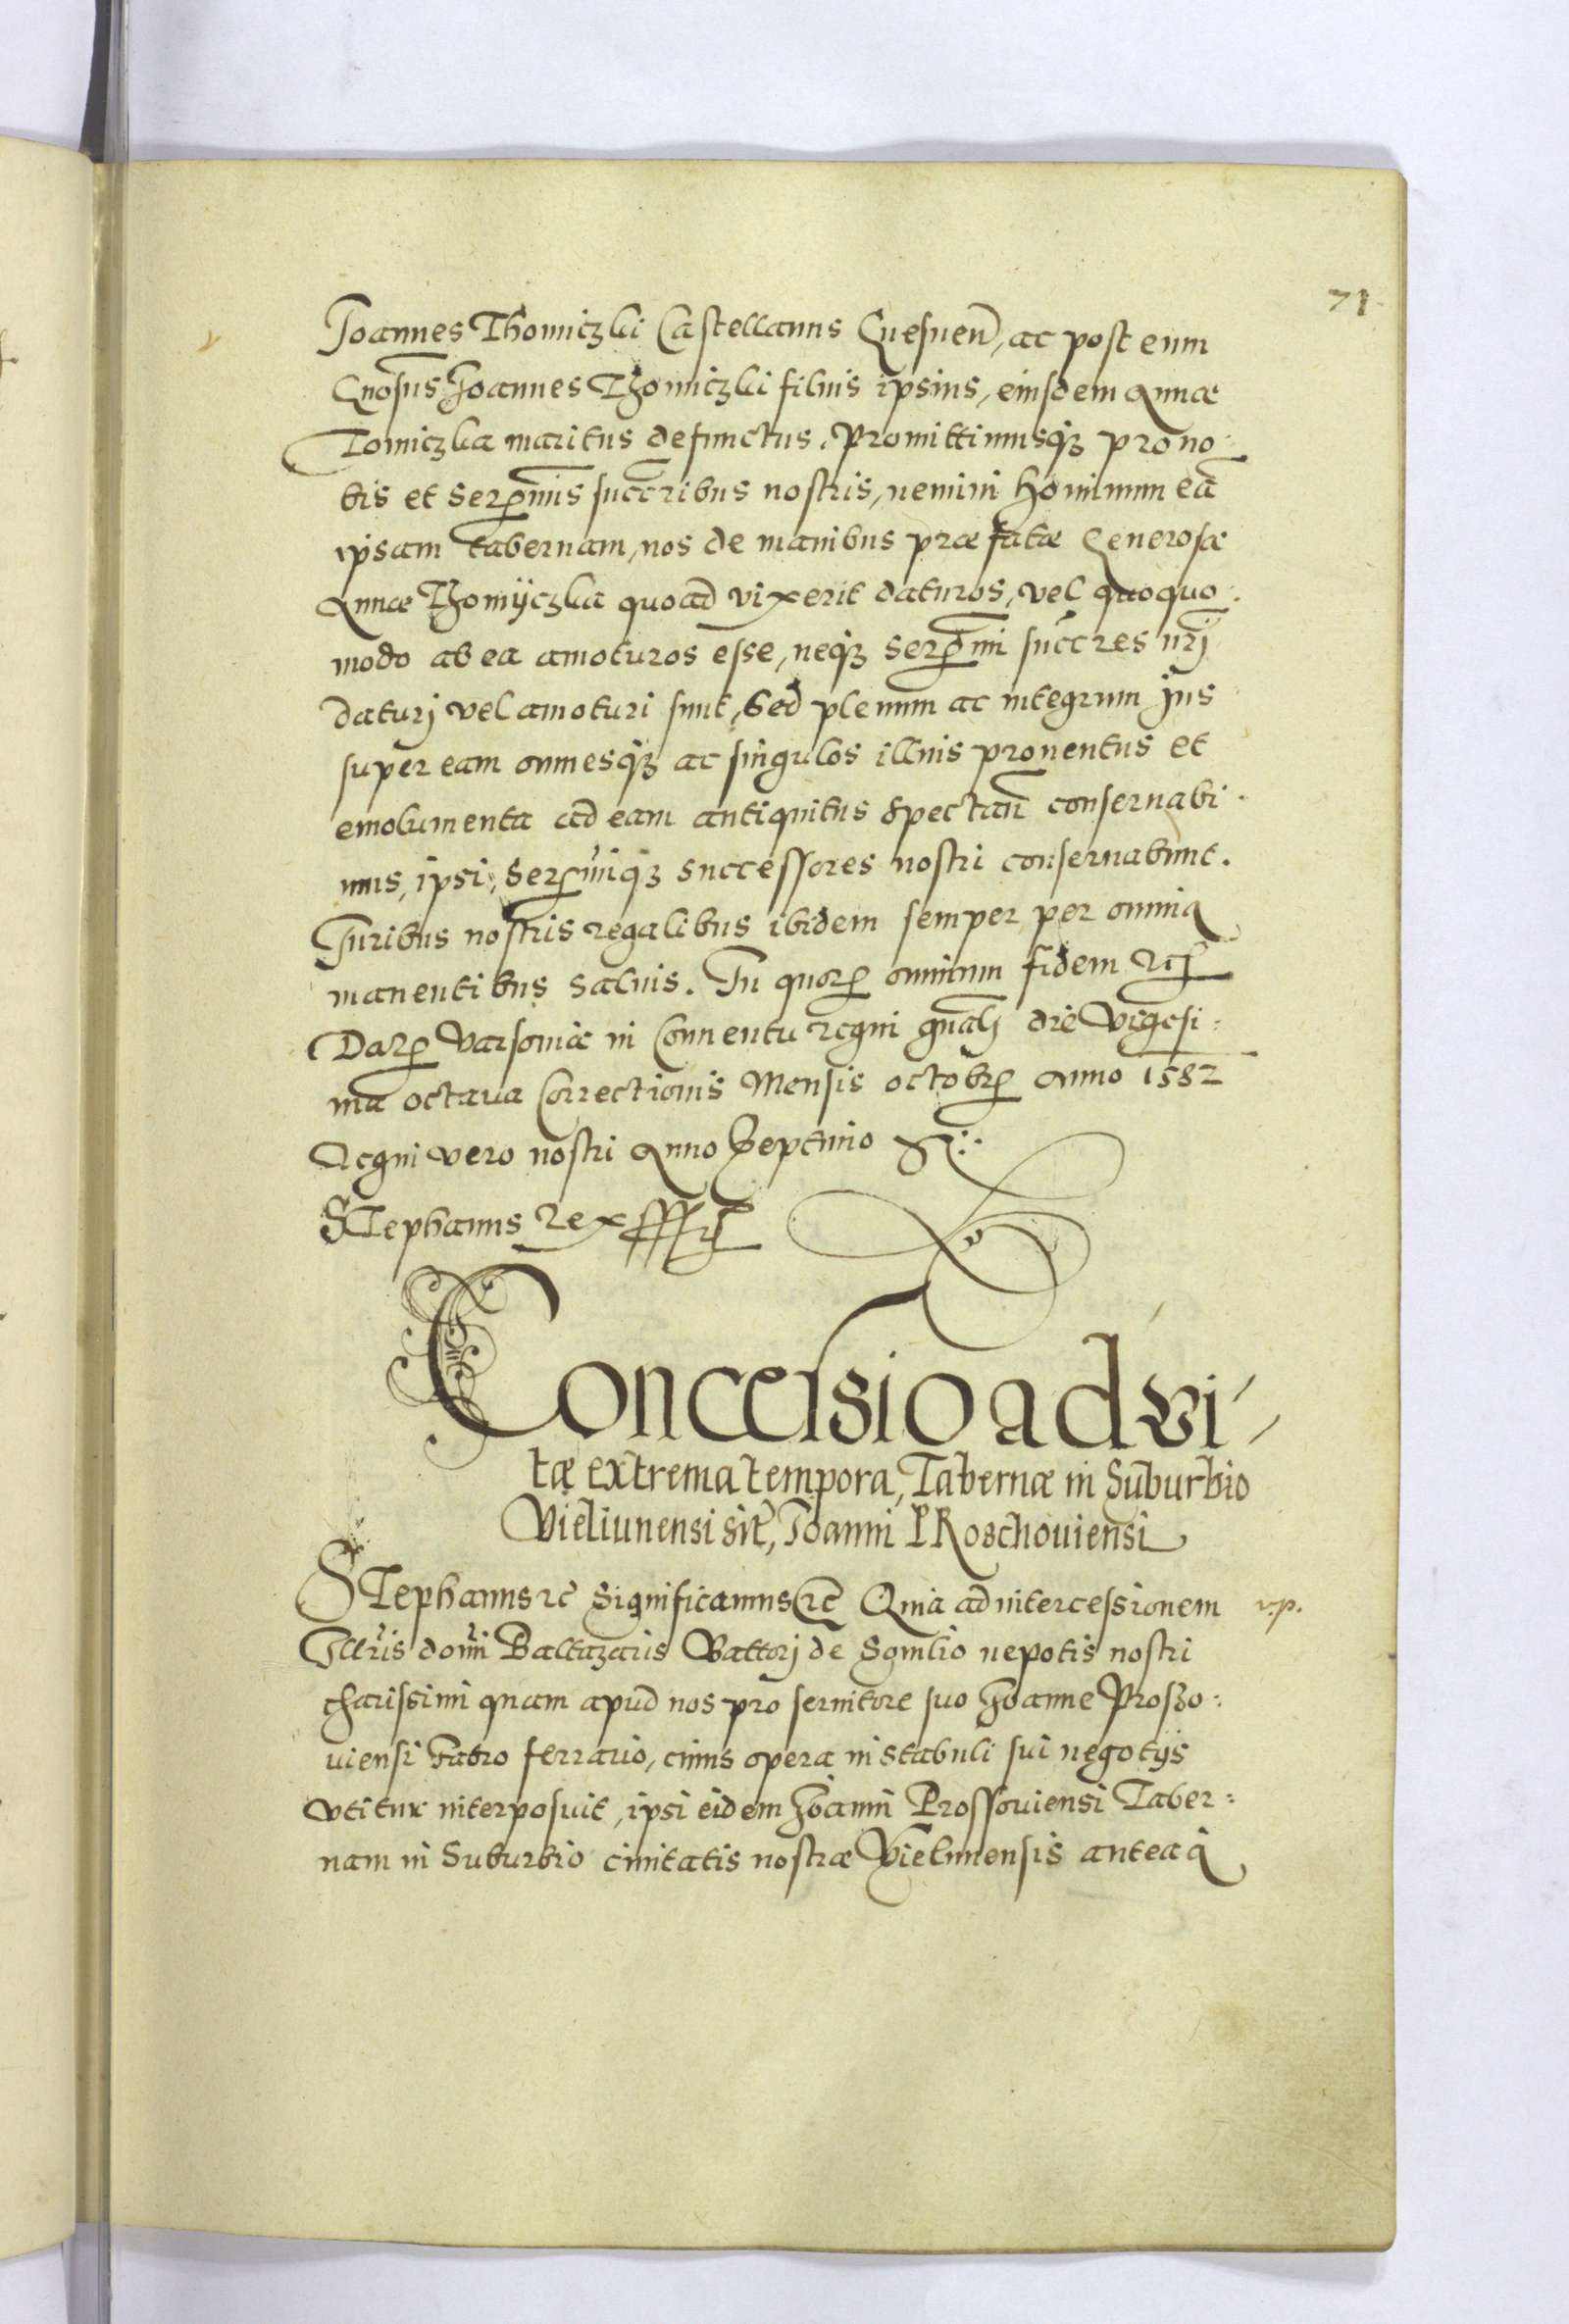 71
Joannes Thomiczki Castellanus Gnesnen̄, ac post eum
Gnōsus Joannes Thomiczki filius ipsius, eiusdem Annæ
Tomiczka maritus defunctus. Promittimusq₃ pro no:
bis et Serēmis succribus nostris, nemini hominum eā
ipsam tabernam, nos de manibus præfatæ Generosæ
Annæ Thomyczka quoad vixerit daturos, vel quoquo:
modo ab ea amoturos esse, neq₃ Serēmi succres nrj
daturj vel amoturi sunt, Sed plenum ac integrum jus
super eam omnesq₃ ac singulos illius prouentus et
emolumenta ad eam antiquitus spectan̄ conseruabi:
mus, ipsi, Serēmiq₃ successores nostri conseruabunt.
Juribus nostris regalibus ibidem semper per omnia
manentibus saluis. In quorꝝ omnium fidem rc̄
Datꝝ Varsouiæ in Conuentu regni gn̄alj die Vigesi:
ma octaua Correctionis Mensis octobrꝭ Anno 1582
Regni vero nostri Anno Septimo
Stephanus Rex
Concessio ad vi-
tæ extrema tempora, Tabernæ in Suburbio
Vieliunensi sit̄, Joanni PRoschouiensi
Stephanus rc̄ Significamus rc̄ Quia ad intercessionem v.p.
Illris domi Baltazaris Battorj de Somlio nepotis nostri
charissimi quam apud nos pro seruitore suo Joanne Proszo:
uiensi Fabro ferrario, cuius opera in stabuli sui negotijs
vtitur interposuit, ipsi eidem Joanni Prossouiensi Taber:
nam in Suburbio ciuitatis nostræ Vielunensis antea à